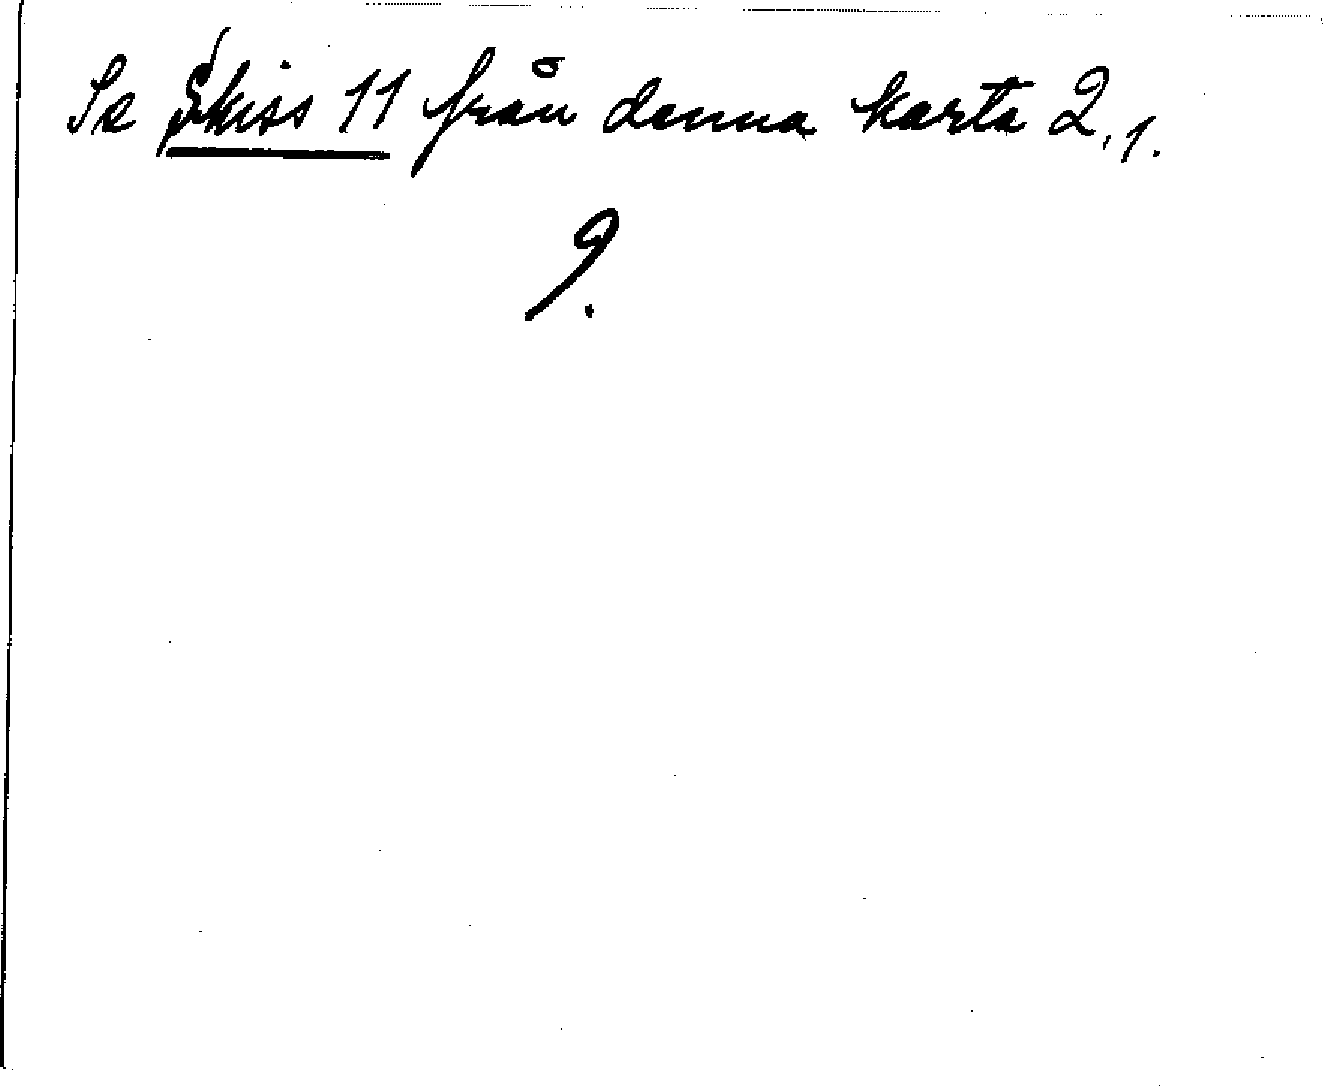 Se Skiss 11 från denna karta 2,1.
9.